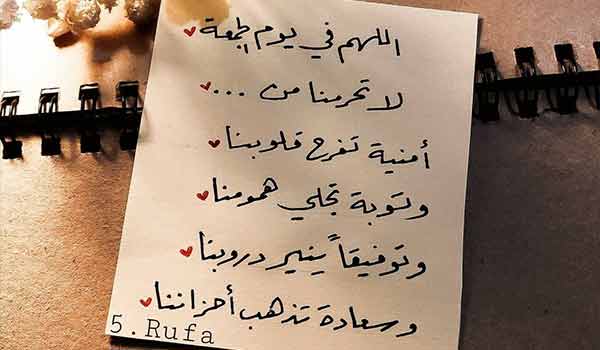 اللهم في يوم الجمعة
لا تحرمنا من ...
أمنية تفرح قلوبنا
وتوبة تجلي همومنا
وتوفيقاً ينير دروبنا
وسعادة تذهب أحزاننا
5.Rufa